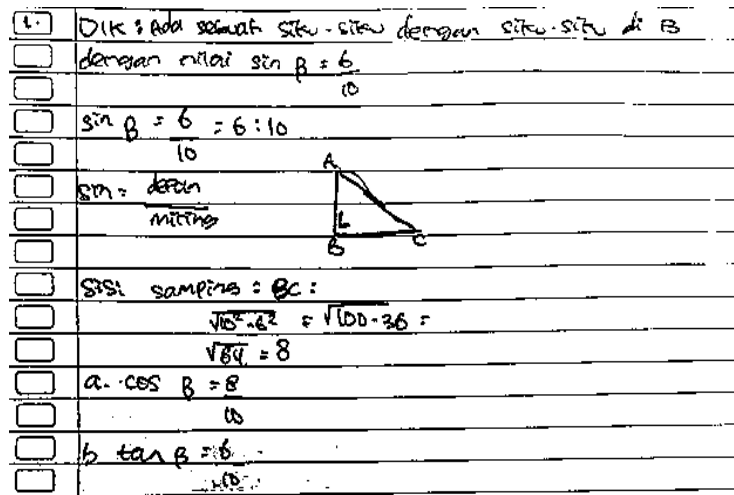 1. DIK : Ada sebuah siku-siku dengan siku-siku di B
dengan nilai sin β = 6/10
sin β = 6/10 = 6 : 10
sin = depan/miring
A
B C
sisi samping = BC :
√10²-6² = √100-36 =
√64 = 8
a. cos β = 8/10
b tan β = 6/10